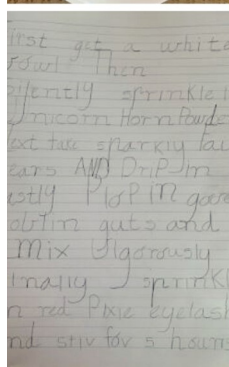 irst get a white
owl Then
ilently sprinkle i
Unicorn Horn Powde
ext take sparkly
ears AND DriP in
stly PloP in
oblin guts and
Mix Vigorously
inally sprinkl
n red Pixie eyelas
nd stiv for 5 hours